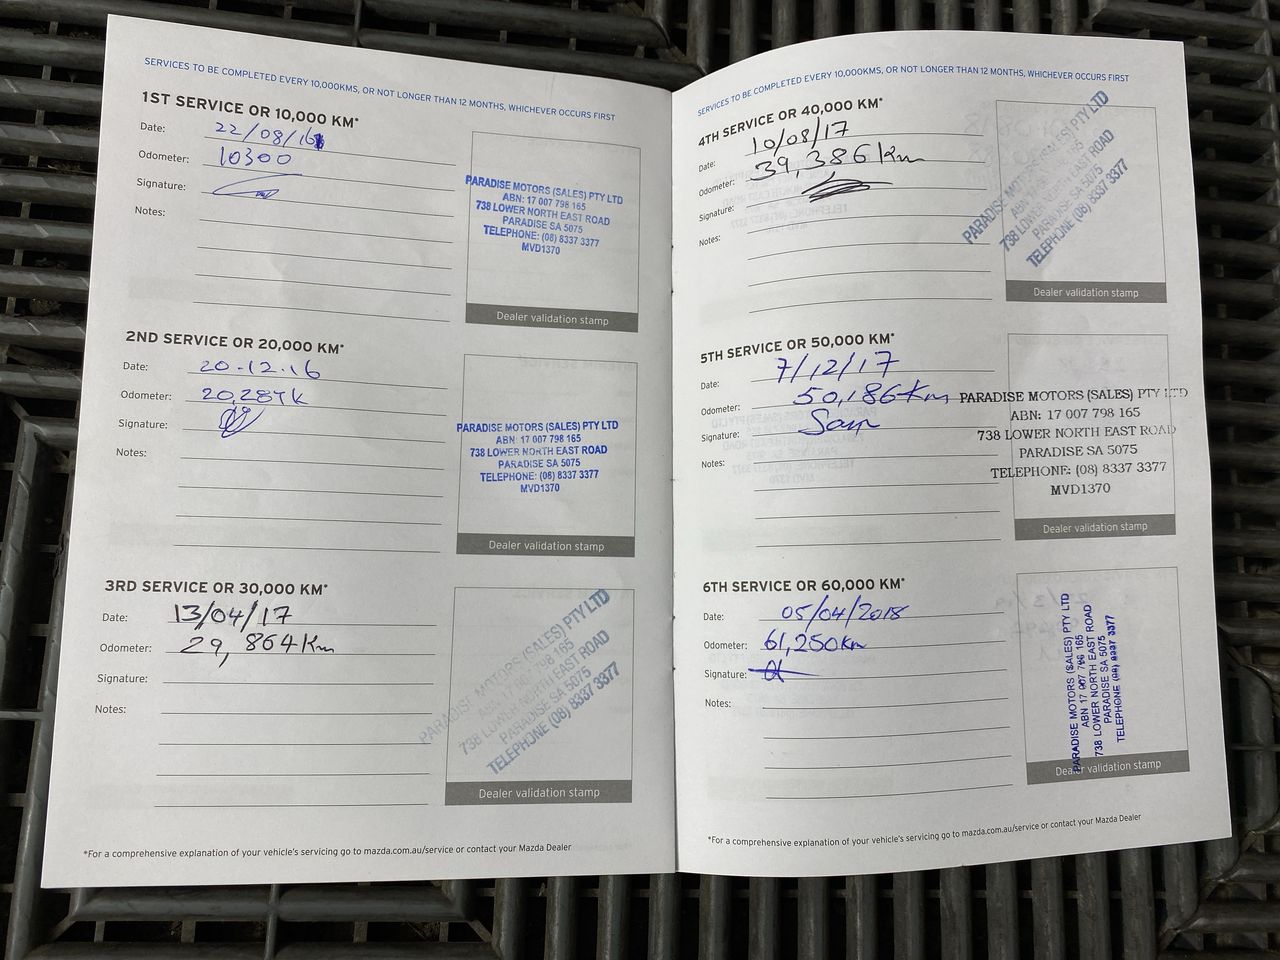 SERVICES TO BE COMPLETED EVERY 10,000KMS, OR NOT LONGER THAN 12 MONTHS, WHICHEVER OCCURS FIRST
1ST SERVICE OR 10,000 KM*
Date: 22/08/16
Odometer: 10300
Signature:
Notes:
PARADISE MOTORS (SALES) PTY LTD
ABN: 17 007 798 165
738 LOWER NORTH EAST ROAD
PARADISE SA 5075
TELEPHONE: (08) 8337 3377
MVD1370
Dealer validation stamp
2ND SERVICE OR 20,000 KM*
Date: 20.12.16
Odometer:
Signature:
Notes:
PARADISE MOTORS (SALES) PTY LTD
ABN: 17 007 798 165
738 LOWER NORTH EAST ROAD
PARADISE SA 5075
TELEPHONE: (08) 8337 3377
MVD1370
Dealer validation stamp
3RD SERVICE OR 30,000 KM*
Date: 13/04/17
Odometer: 29,864Km
Signature:
Notes:
PARADISE MOTORS (SALES) PTY LTD
ABN: 17 007 798 165
738 LOWER NORTH EAST ROAD
PARADISE SA 5075
TELEPHONE (08) 8337 3377
Dealer validation stamp
*For a comprehensive explanation of your vehicle's servicing go to mazda.com.au/service or contact your Mazda Dealer
SERVICES TO BE COMPLETED EVERY 10,000KMS, OR NOT LONGER THAN 12 MONTHS, WHICHEVER OCCURS FIRST
4TH SERVICE OR 40,000 KM*
Date: 10/08/17
Odometer: 39,386Km
Signature:
Notes:
PARADISE MOTORS (SALES) PTY LTD
ABN: 17 007 798 165
738 LOWER NORTH EAST ROAD
PARADISE SA 5075
TELEPHONE (08) 8337 3377
Dealer validation stamp
5TH SERVICE OR 50,000 KM*
Date: 7/12/17
Odometer: 50,186Km
Signature:
Notes:
PARADISE MOTORS (SALES) PTY LTD
ABN: 17 007 798 165
738 LOWER NORTH EAST ROAD
PARADISE SA 5075
TELEPHONE: (08) 8337 3377
MVD1370
Dealer validation stamp
6TH SERVICE OR 60,000 KM*
Date: 05/04/2018
Odometer: 61,250Km
Signature:
Notes:
PARADISE MOTORS (SALES) PTY LTD
ABN 17 007 798 165
738 LOWER NORTH EAST ROAD
PARADISE SA 5075
TELEPHONE (08) 8337 3377
Dealer validation stamp
*For a comprehensive explanation of your vehicle's servicing go to mazda.com.au/service or contact your Mazda Dealer